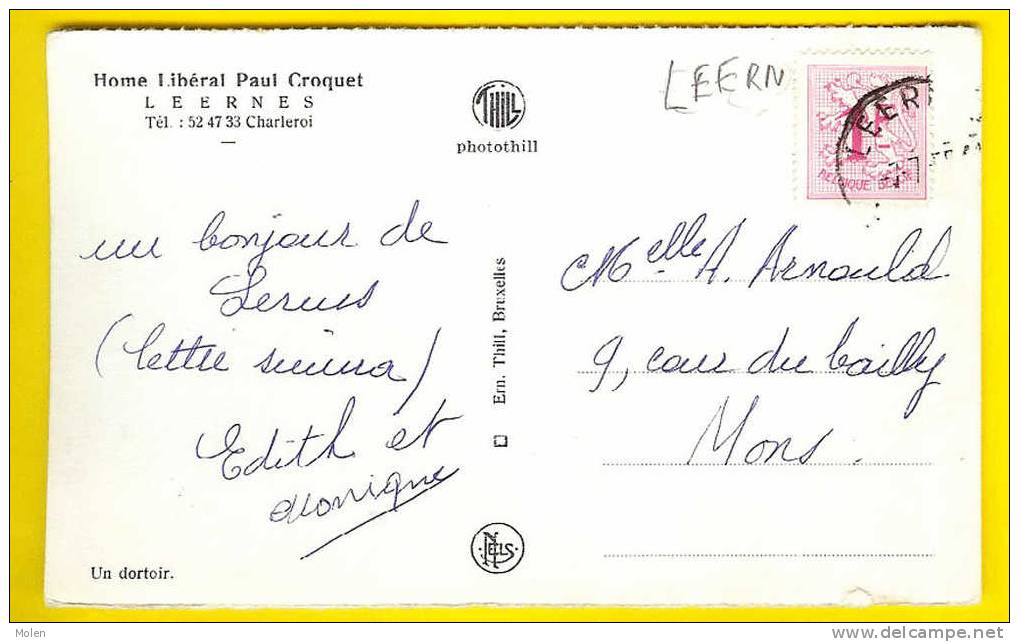 Home Libéral Paul Croquet
LEERNES
Tél. : 52 47 33 Charleroi
THILL
photothill
LEERN
LEER
BELGIQUE BELGIE
un bonjour de
Lernes
(lettre suivra)
Edith et
Monique
Ern. Thill, Bruxelles
Melle A. Arnould
9, cour du bailly
Mons.
NELS
Un dortoir.
Molen
delcampe.net